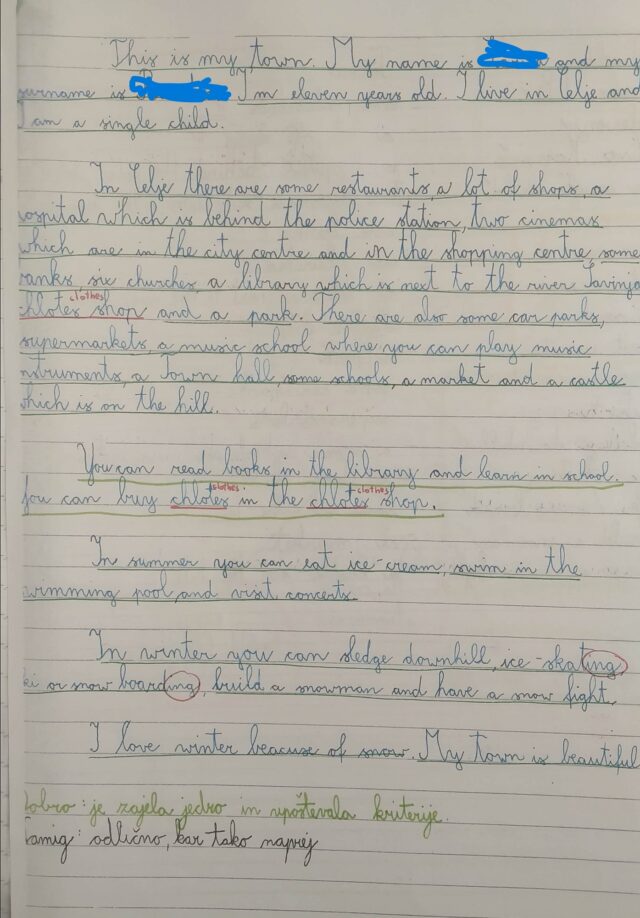 This is my town. My name is and my
surname is I'm eleven years old. I live in Celje and
I am a single child.
In Celje there are some restaurants, a lot of shops, a
hospital which is behind the police station, two cinemas
which are in the city centre and in the shopping centre, some
banks, six churches, a library which is next to the river Savinja
clothes
chlotes shop and a park. There are also some car parks,
supermarkets, a music school where you can play music
instruments, a Town hall, some schools, a market and a castle
which is on the hill.
You can read books in the library and learn in school.
clothes clothes
You can buy chlotes in the chlotes shop.
In summer you can eat ice-cream, swim in the
swimming pool, and visit concerts.
In winter you can sledge downhill, ice-skating,
ski or snow boarding, build a snowman and have a snow fight.
I love winter beacuse of snow. My town is beautiful
Dobro: je zajela jedro in upoštevala kriterije.
odlično, kar tako naprej